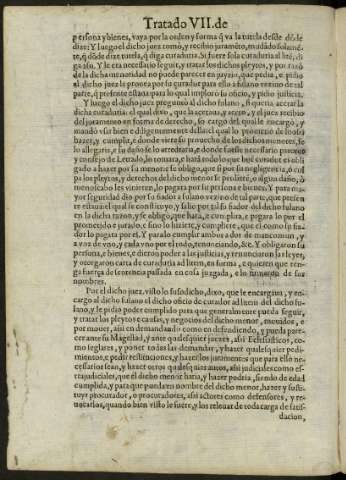 Tratado VII. de
persona y bienes, vaya por la orden y forma q̃ va la tutela desde dõ de
dize: Y luego el dicho juez tomò, y recibio juramẽto, mudãdo solamẽ-
te, q̃ dõde dize tutela, q̃ diga curaduria. Si fuere sola curaduria ad litẽ, di-
ga assi. Y le era necessario seguir, y tratar los dichos pleytos, y por razõ
de la dicha menoridad no puede parecer en juyzio, que pedia, e pidio
al dicho juez le provea por su curador para ello a fulano vezino de tal
parte, q̃ presente estaua para lo qual imploro su oficio, y pidio justicia.
Y luego el dicho juez preguntò al dicho fulano, si queria acetar la
dicha curaduria: el qual dixo, que la acetaua, y aceto, y el juez recibio
del juramento en forma de derecho, so cargo del qual le encargò, y
mandò vse bien e diligentemente della: el qual lo prometio de lo assi
hazer, y cumplir, e donde viere su prouecho de los dichos menores, se
lo allegarà, e su daño se lo arredrarà, e donde fuesse necessario parecer
y consejo de Letrado, lo tomara, e harà todo lo que buẽ curador es obli-
gado a hazer por su menor: e se obligo, que si por su negligencia, o cul-
pa los pleytos, y derechos del dicho menor se perdierẽ, o algun daño, ò
menoscabo les viniere, lo pagarà por su persona e bienes: Y para ma-
yor seguridad dio por su fiador a fulano vezino de tal parte, que presen-
te estaua: el qual se constituyò, y salio por tal su fiador del dicho fulano
en la dicha razon, y se obligo, que harà, e cumplirà, e pagarà lo por el
prometido e jurado: e sino lo hiziere, y cumpliere, que el como su fia-
dor lo pagarà por el. Y paralo cumplir ambos a dos de mancomun, y
a voz de vno, y cada vno por el todo, renunciando, &c. Y obligaron sus
personas, e bienes, e dieron poder a las justicias, y renunciaron las leyes,
y otorgaron carta de curaduria ad litem, en forma, e quieren que ten-
ga fuerça de sentencia passada en cosa juzgada, e lo firmaron de sus
nombres.
Por el dicho juez, visto lo susodicho, dixo, que le encargaua, y en-
cargò al dicho fulano el dicho oficio de curador ad litem del dicho fu-
lano, y le pidio poder cumplido para que generalmente pueda seguir,
y tratar los pleytos e causas, y negocios del dicho menor, mouidos, e
por mouer, assi en demandando como en defendiendo, y pueda pare-
cer ante su Magestad, y ante qualesquier juezes, assi Eclesiasticos, co-
mo seglares, y poner todas las demandas, y hazer qualesquier pedi-
mientos, e pedir restituciones, y hazer los juramentos que para ello ne-
cessarios sean, y hazer otros qualesquier autos, assi judiciales como es-
trajudiciales, que el dicho menor haria, y hazer podria, siendo de edad
cumplida, y para que pueda en nombre del dicho menor, hazer y susti-
tuyr procurador, o procuradores, assi actores como defensores, y re-
uocarlos, quando bien visto le fuere, y los releuar de toda carga de satis-
dacion,